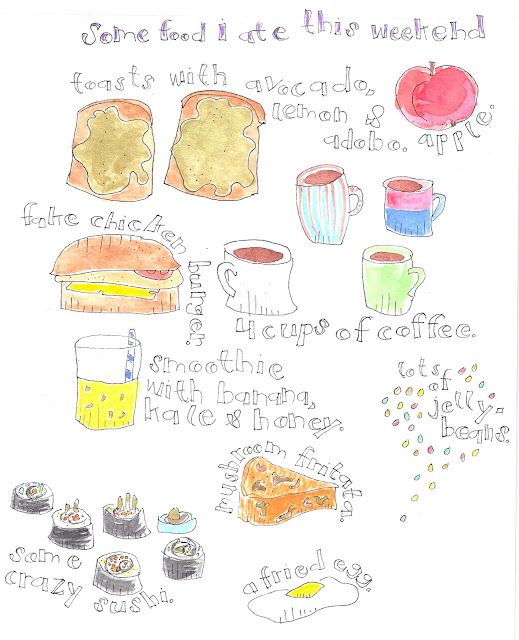 Some food i ate this weekend
toasts with avocado,
lemon &
adobo.
apple.
fake chicken
burger.
4 cups of coffee.
smoothie
with banana,
kale & honey.
lots
of
jelly-
beans.
mushroom frittata.
some
crazy sushi.
a fried egg.